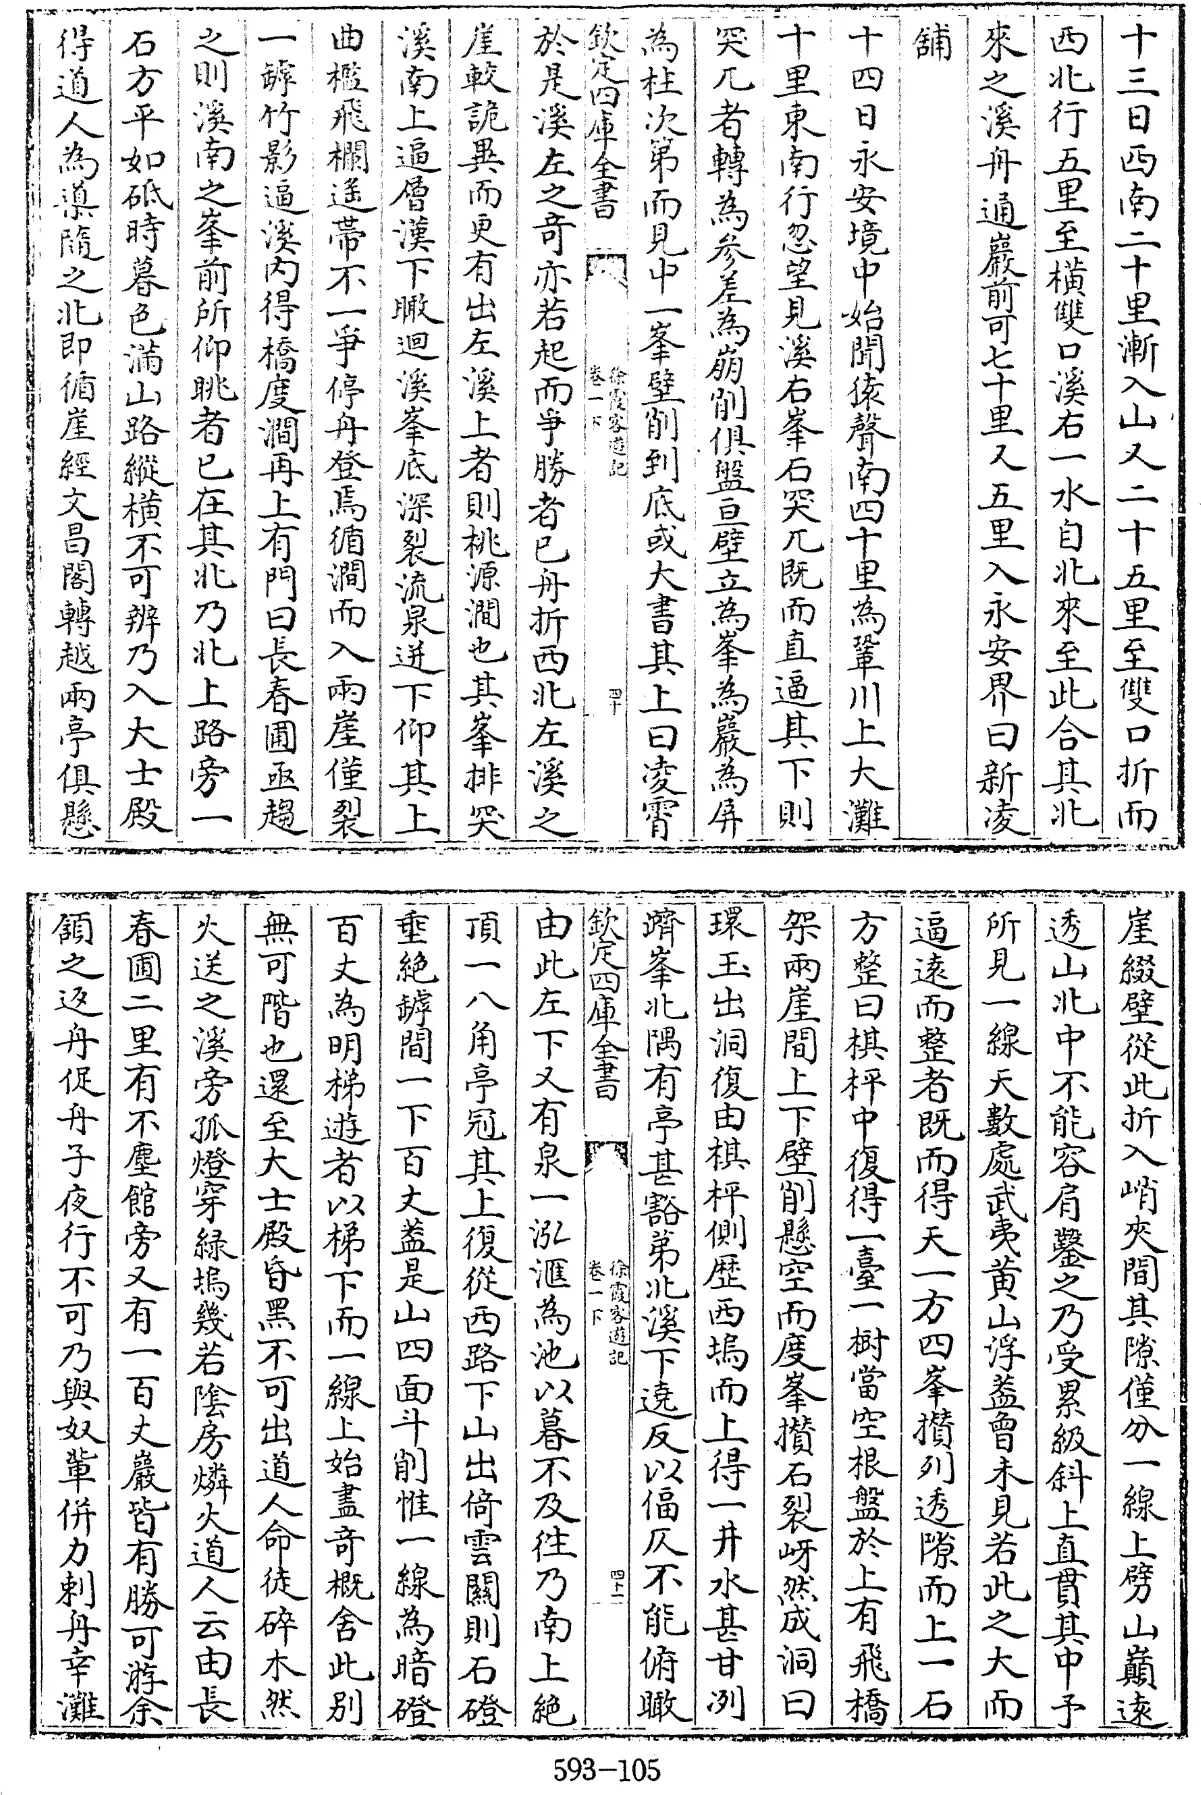 十三日西南二十里漸入山又二十五里至雙口折而
西北行五里至橫雙口溪右一水自北來至此合其北
來之溪舟通巖前可七十里又五里入永安界曰新凌
舖
十四日永安境中始聞猿聲南四十里為鞏川上大灘
十里東南行忽望見溪右峯石突兀既而直逼其下則
突兀者轉為參差為崩削俱盤亘壁立為峯為巖為屏
為柱次第而見中一峯壁削到底或大書其上曰凌霄
欽定四庫全書
徐霞客遊記
卷一下
四十
於是溪左之奇亦若起而爭勝者已舟折西北左溪之
崖較詭異而更有出左溪上者則桃源澗也其峯排突
溪南上逼層漢下瞰迴溪峯底深裂流泉迸下仰其上
曲檻飛欄遙帶不一爭停舟登焉循澗而入兩崖僅裂
一罅竹影逼溪內得橋度澗再上有門曰長春圃亟趨
之則溪南之峯前所仰眺者已在其北乃北上路旁一
石方平如砥時暮色滿山路縱橫不可辨乃入大士殿
得道人為導隨之北即循崖經文昌閣轉越兩亭俱懸
崖綴壁從此折入峭夾間其隙僅分一線上劈山巔遠
透山北中不能容肩鑿之乃受累級斜上直貫其中予
所見一線天數處武夷黃山浮蓋曾未見若此之大而
逼遠而整者既而得天一方四峯攢列透隙而上一石
方整曰棋枰中復得一臺一樹當空根盤於上有飛橋
架兩崖間上下壁削懸空而度峯攢石裂岈然成洞曰
環玉出洞復由棋枰側歷西塢而上得一井水甚甘冽
躋峯北隅有亭甚豁第北溪下遶反以偪仄不能俯瞰
欽定四庫全書
徐霞客遊記
卷一下
四十一
由此左下又有泉一泓滙為池以暮不及往乃南上絕
頂一八角亭冠其上復從西路下山出倚雲關則石磴
垂絕罅間一下百丈蓋是山四面斗削惟一線為暗磴
百丈為明梯遊者以梯下而一線上始盡奇概舍此別
無可階也還至大士殿昏黑不可出道人命徒碎木然
火送之溪旁孤燈穿綠塢幾若陰房燐火道人云由長
春圃二里有不塵館旁又有一百丈巖皆有勝可游余
頷之返舟促舟子夜行不可乃與奴輩併力刺舟幸灘
593-105